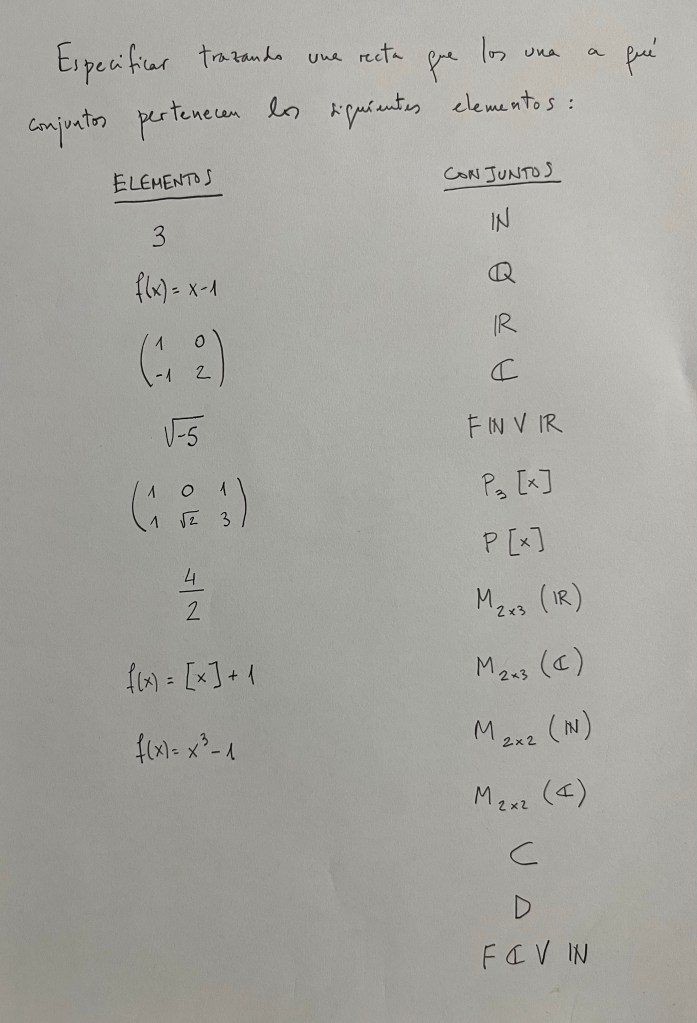 Especificar trazando una recta que los una a qué
conjuntos pertenecen los siguientes elementos:
ELEMENTOS CONJUNTOS
3 ℕ
f(x) = x-1 ℚ
( 1 0 ) ℝ
( -1 2 ) ℂ
√-5 F ℕ V ℝ
( 1 0 1 ) P₃ [x]
( 1 √2 3 ) P [x]
4/2 M₂ₓ₃ (ℝ)
f(x) = [x] + 1 M₂ₓ₃ (ℂ)
f(x) = x³ - 1 M₂ₓ₂ (ℕ)
M₂ₓ₂ (ℂ)
C
D
F ℂ V ℕ